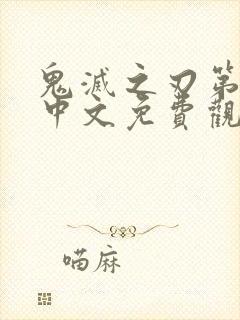 鬼滅之刃第
中文免費觀
喵麻